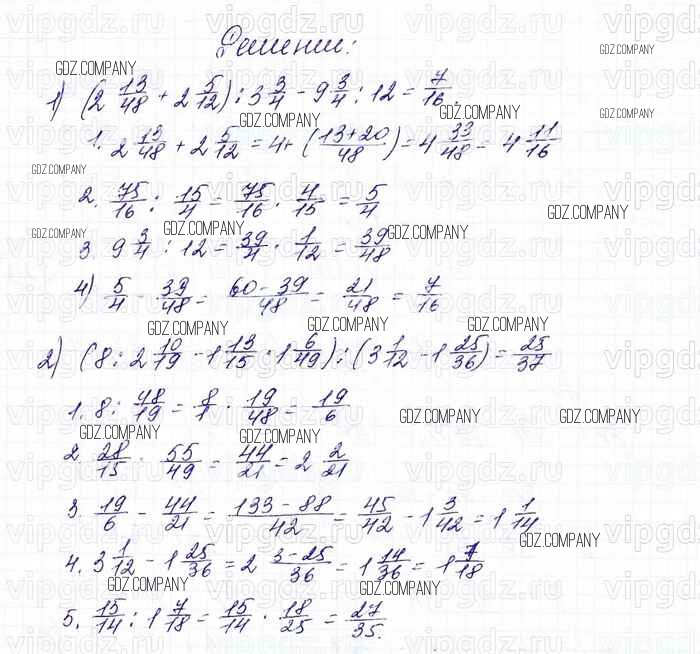 Решении:
1) (2 13/48 + 2 5/12) : 3 3/4 - 9 3/4 : 12 = 7/16.
1. 2 13/48 + 2 5/12 = 4 + (13+20/48) = 4 33/48 = 4 11/16
2. 75/16 : 15/4 = 75/16 · 4/15 = 5/4
3. 9 3/4 : 12 = 39/4 · 1/12 = 39/48
4) 5/4 - 39/48 = 60-39/48 = 21/48 = 7/16
2) (8 : 2 10/19 - 1 13/15 · 1 6/49) : (3 1/12 - 1 25/36) = 25/37
1. 8 : 48/19 = 8/1 · 19/48 = 19/6
2 28/15 · 55/49 = 44/21 = 2 2/21
3. 19/6 - 44/21 = 133-88/42 = 45/42 - 1 3/42 = 1 1/14
4. 3 1/12 - 1 25/36 = 2 3-25/36 = 1 14/36 = 1 7/18
5. 15/14 : 1 7/18 = 15/14 · 18/25 = 27/35.
GDZ.COMPANY
vipgdz.ru